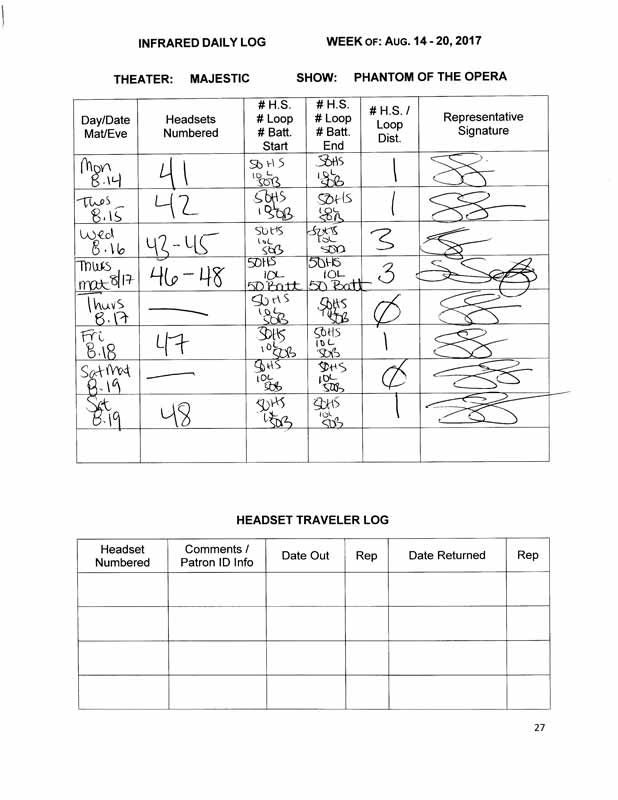 INFRARED DAILY LOG WEEK OF: AUG. 14 - 20, 2017
THEATER: MAJESTIC SHOW: PHANTOM OF THE OPERA
Day/Date Mat/Eve
Headsets Numbered
# H.S. # Loop # Batt. Start
# H.S. # Loop # Batt. End
# H.S. / Loop Dist.
Representative Signature
Mon 8.14
41
50HS 10L 50B
50HS 10L 50B
1
Tues 8.15
42
50HS 10L 50B
50HS 10L 50B
1
Wed 8.16
43-45
50HS 10L 50B
50HS 10L 50B
3
Thurs mat 8/17
46-48
50HS 10L 50 Batt
50HS 10L 50 Batt
3
Thurs 8.17
—
50HS 10L 50B
50HS 10L 50B
Ø
Fri 8.18
47
50HS 10L 50B
50HS 10L 50B
1
Sat Mat 8.19
—
50HS 10L 50B
50HS 10L 50B
Ø
Sat 8.19
48
50HS 10L 50B
50HS 10L 50B
1
HEADSET TRAVELER LOG
Headset Numbered
Comments / Patron ID Info
Date Out
Rep
Date Returned
Rep
27